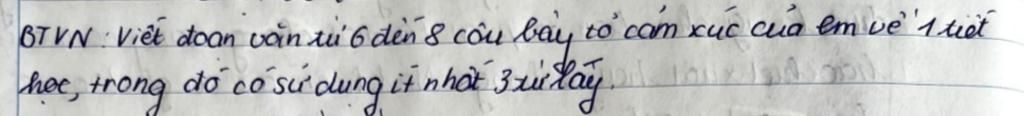 BTVN: Viết đoạn văn từ 6 đến 8 câu bày tỏ cảm xúc của em về 1 tiết
học, trong đó có sử dụng ít nhất 3 từ láy.